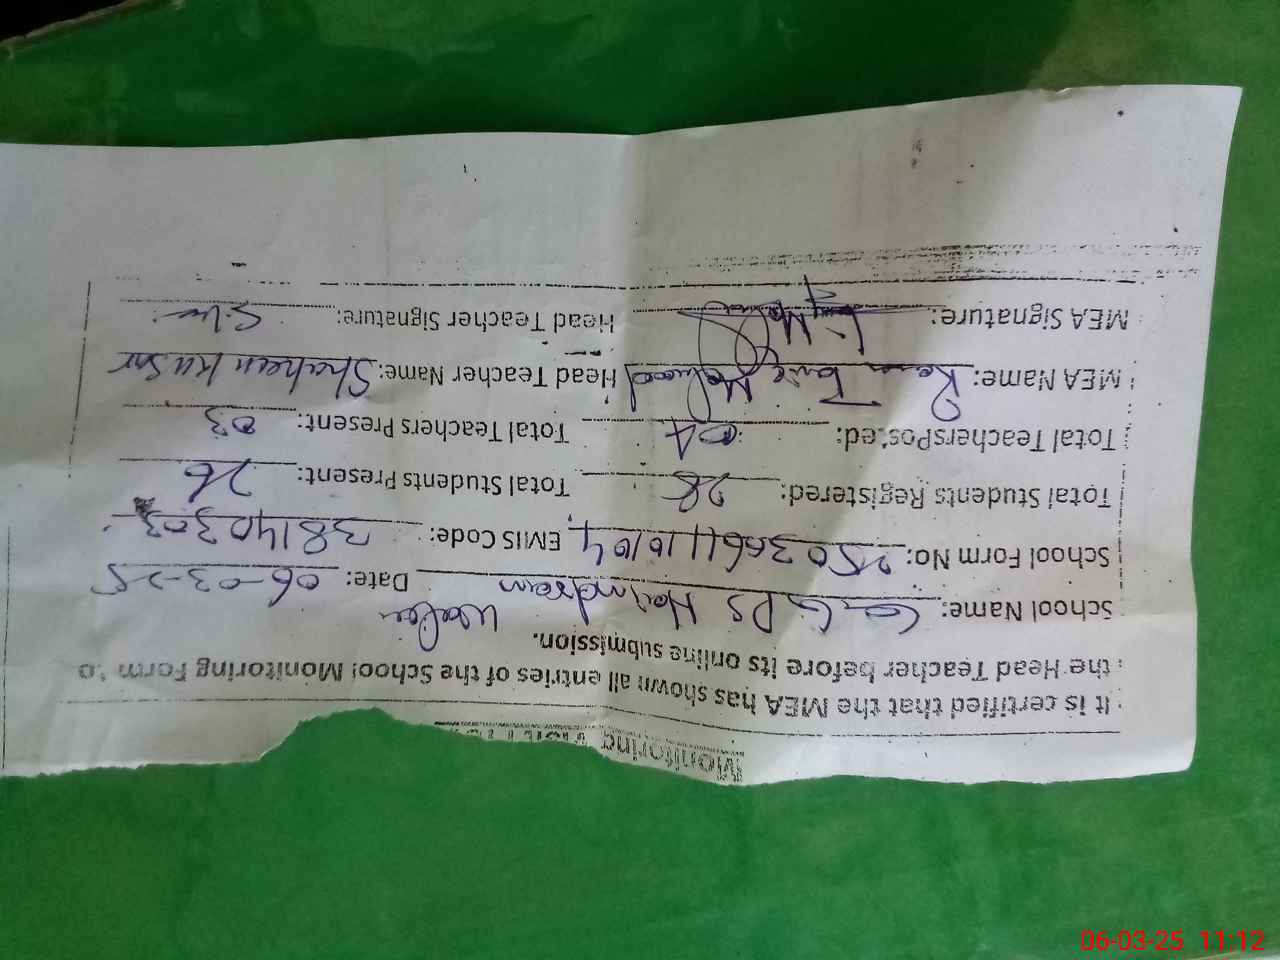 Monitoring
It is certified that the MEA has shown all entries of the School Monitoring Form to
the Head Teacher before its online submission.
School Name: GGPS Date: 06-03-25
School Form No: EMIS Code: 38140303
Total Students Registered: 28 Total Students Present: 26
Total Teachers Posted: 04 Total Teachers Present: 03
MEA Name: Rana Head Teacher Name: Shaheen Kusar
MEA Signature: Head Teacher Signature:
06-03-25 11:12